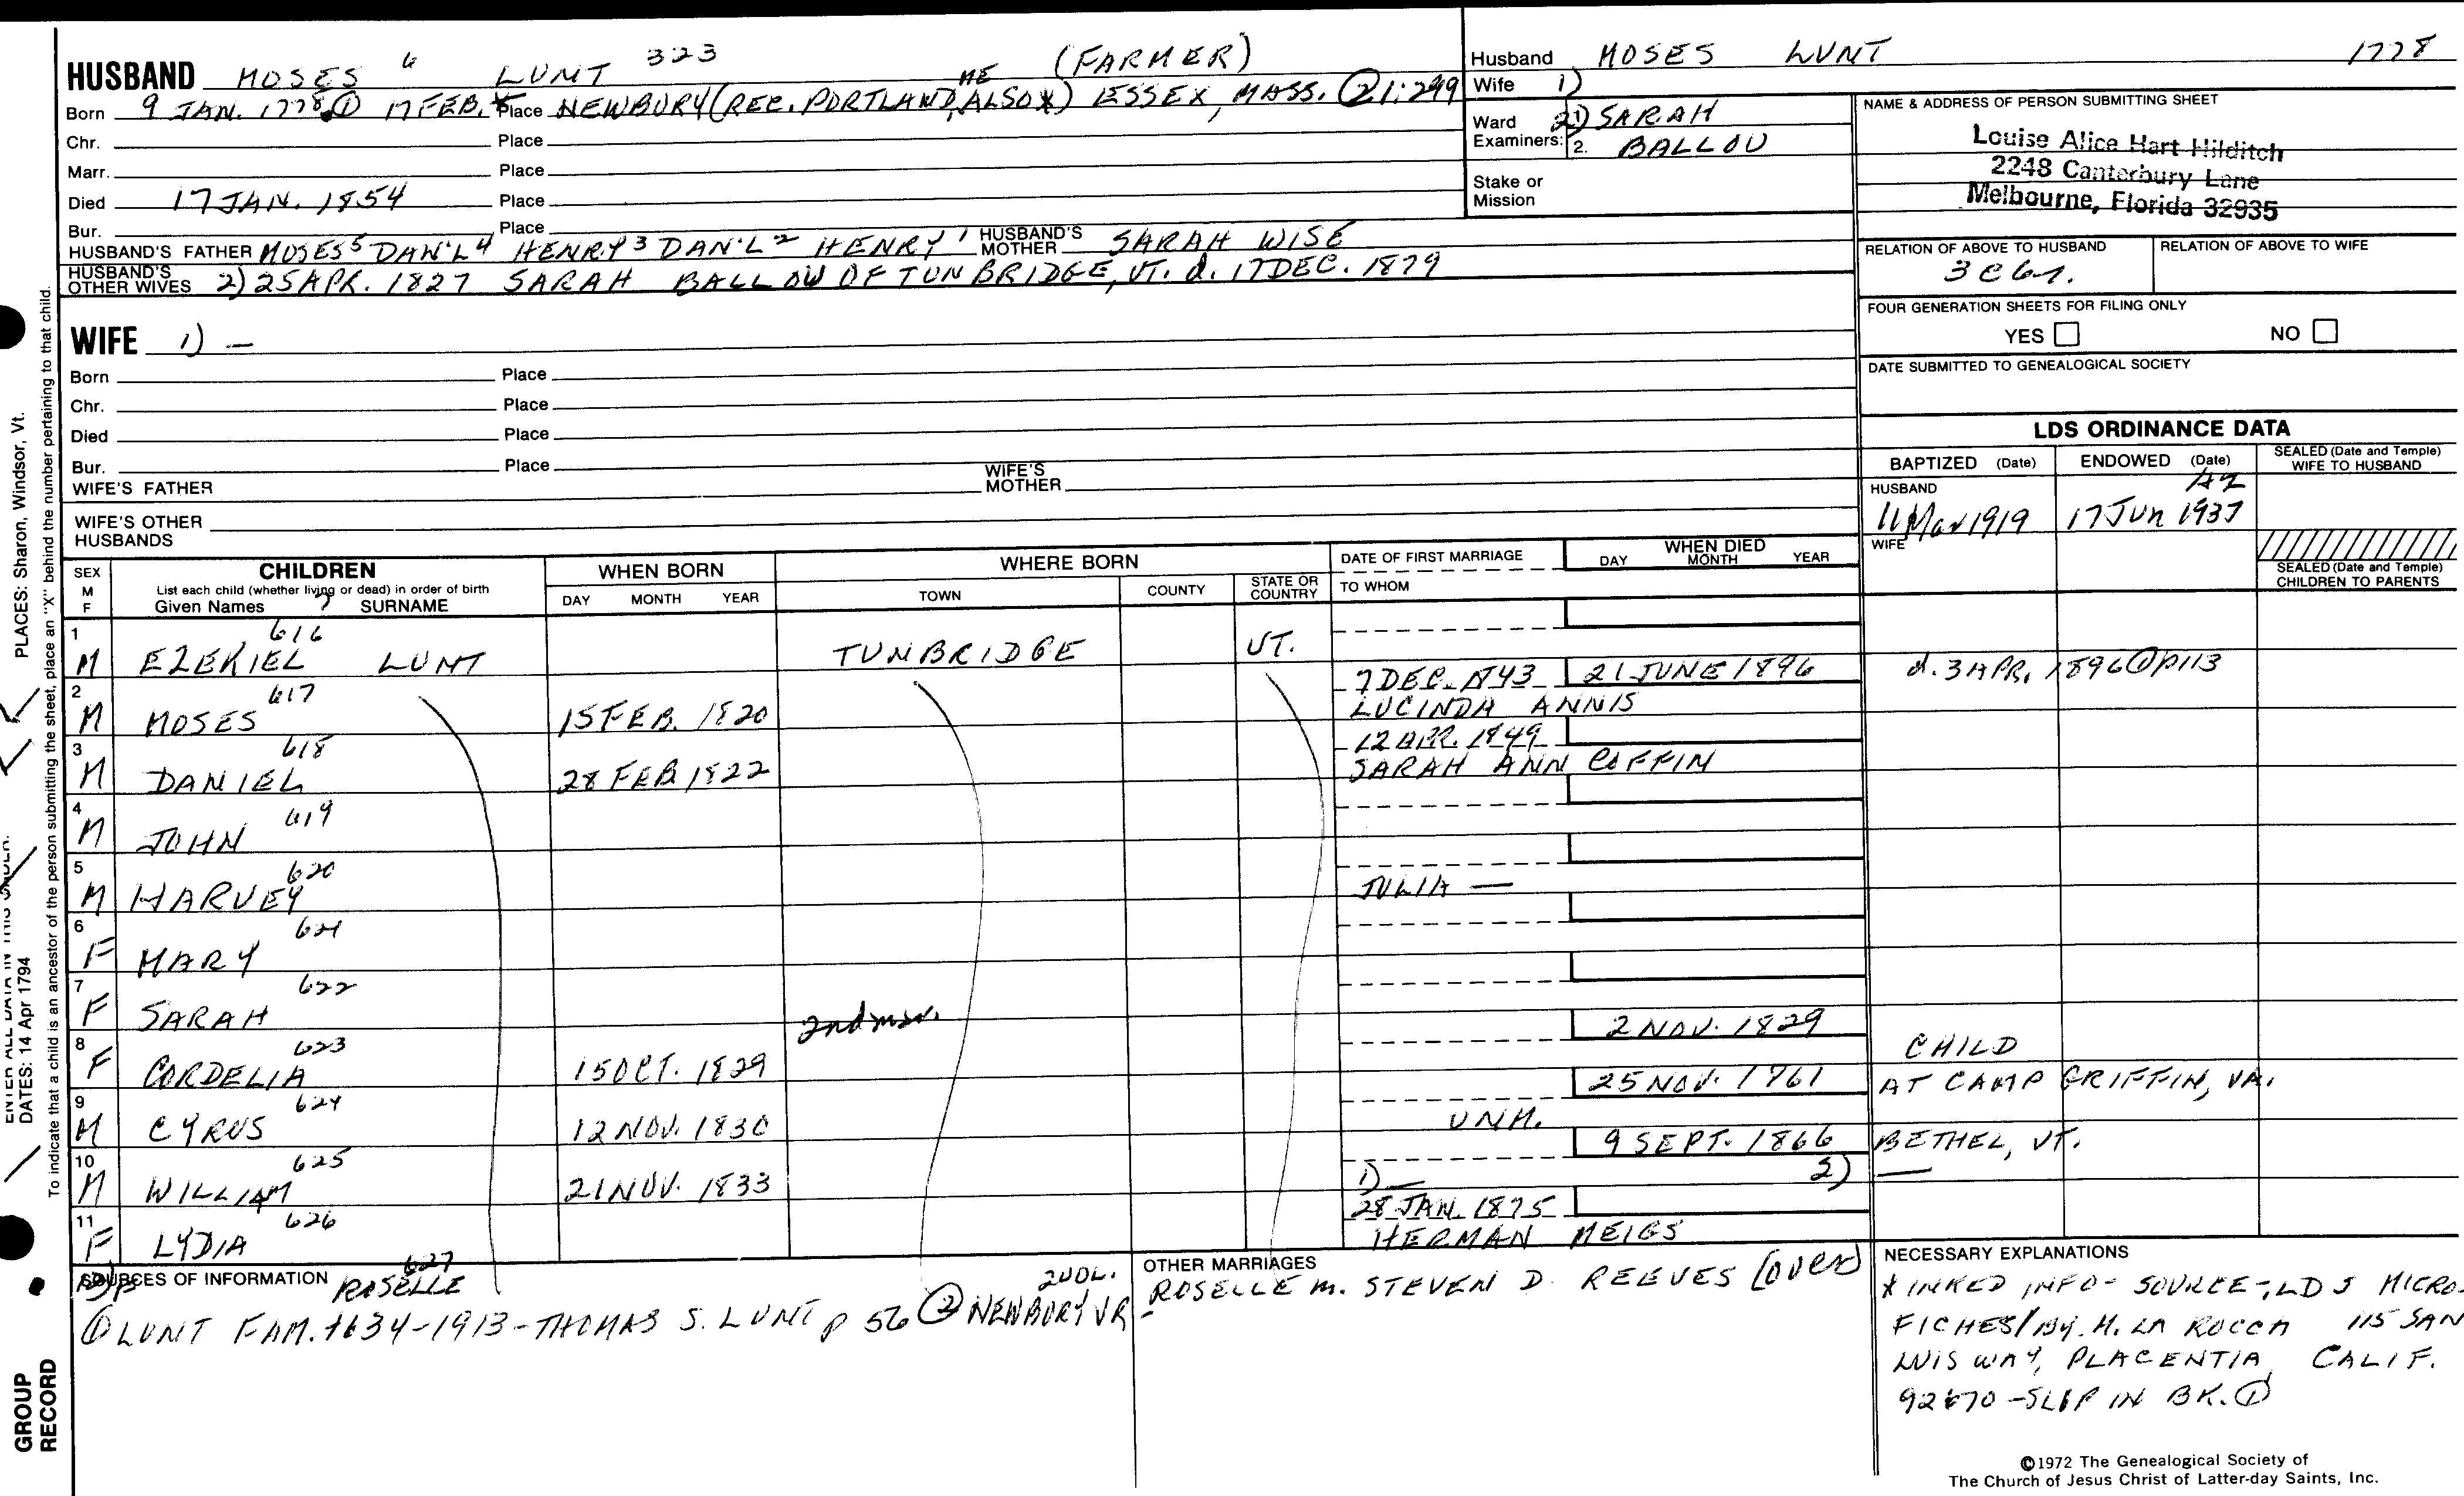 HUSBAND MOSES 6 LUNT 323 (FARMER)
Born 9 JAN. 1778 ① 17 FEB.* Place NEWBURY (REC. PORTLAND, ME ALSO *) ESSEX, MASS. ② 1:299
Chr. Place
Marr. Place
Died 17 JAN. 1854 Place
Bur. Place
HUSBAND'S FATHER MOSES5 DAN'L4 HENRY3 DAN'L2 HENRY1 HUSBAND'S MOTHER SARAH WISE
HUSBAND'S OTHER WIVES 2) 25 APR. 1827 SARAH BALLOW OF TUNBRIDGE, VT. d. 17 DEC. 1879
Husband MOSES LUNT 1778
Wife 1)
Ward Examiners: 1. 2) SARAH
2. BALLOU
Stake or Mission
NAME & ADDRESS OF PERSON SUBMITTING SHEET
Louise Alice Hart Hilditch
2248 Canterbury Lane
Melbourne, Florida 32935
RELATION OF ABOVE TO HUSBAND RELATION OF ABOVE TO WIFE
FOUR GENERATION SHEETS FOR FILING ONLY
YES NO
DATE SUBMITTED TO GENEALOGICAL SOCIETY
WIFE 1) —
Born Place
Chr. Place
Died Place
Bur. Place
WIFE'S FATHER WIFE'S MOTHER
WIFE'S OTHER HUSBANDS
LDS ORDINANCE DATA
BAPTIZED (Date) ENDOWED (Date) SEALED (Date and Temple) WIFE TO HUSBAND
HUSBAND 11 Mar 1919 17 Jun 1937 AZ
WIFE
SEALED (Date and Temple) CHILDREN TO PARENTS
SEX M F CHILDREN WHEN BORN WHERE BORN DATE OF FIRST MARRIAGE WHEN DIED
List each child (whether living or dead) in order of birth
Given Names SURNAME DAY MONTH YEAR TOWN COUNTY STATE OR COUNTRY TO WHOM DAY MONTH YEAR
1 M EZEKIEL 616 LUNT TUNBRIDGE VT.
2 M MOSES 617 15 FEB. 1820 7 DEC. 1843 LUCINDA ANNIS 21 JUNE 1896 d. 3 APR. 1896 ① p113
3 M DANIEL 618 28 FEB 1822 12 APR. 1849 SARAH ANN COFFIN
4 M JOHN 619
5 M HARVEY 620 JULIA —
6 F MARY 621
7 F SARAH 622
2nd mar.
8 F CORDELIA 623 15 OCT. 1829 2 NOV. 1829 CHILD
9 M CYRUS 624 12 NOV. 1830 UNM. 25 NOV. 1861 AT CAMP GRIFFIN, VA.
10 M WILLIAM 625 21 NOV. 1833 1) — 9 SEPT. 1866 2) — BETHEL, VT.
11 F LYDIA 626 28 JAN. 1875 HERMAN MEIGS
SOURCES OF INFORMATION ROSELLE 627
① LUNT FAM. 1634-1913-THOMAS S. LUNT p 56 ② NEWBURY VR 2 VOL.
OTHER MARRIAGES
ROSELLE m. STEVEN D. REEVES (over)
NECESSARY EXPLANATIONS
* INKED INFO- SOURCE-, LDS MICRO-
FICHES/ BY. H. LA ROCCA 115 SAN
LUIS WAY, PLACENTIA, CALIF.
92670 - SLIP IN BK. ①
©1972 The Genealogical Society of
The Church of Jesus Christ of Latter-day Saints, Inc.
PLACES: Sharon, Windsor, Vt.
DATES: 14 Apr 1794
To indicate that a child is an ancestor of the person submitting the sheet, place an "X" behind the number pertaining to that child.
GROUP
RECORD